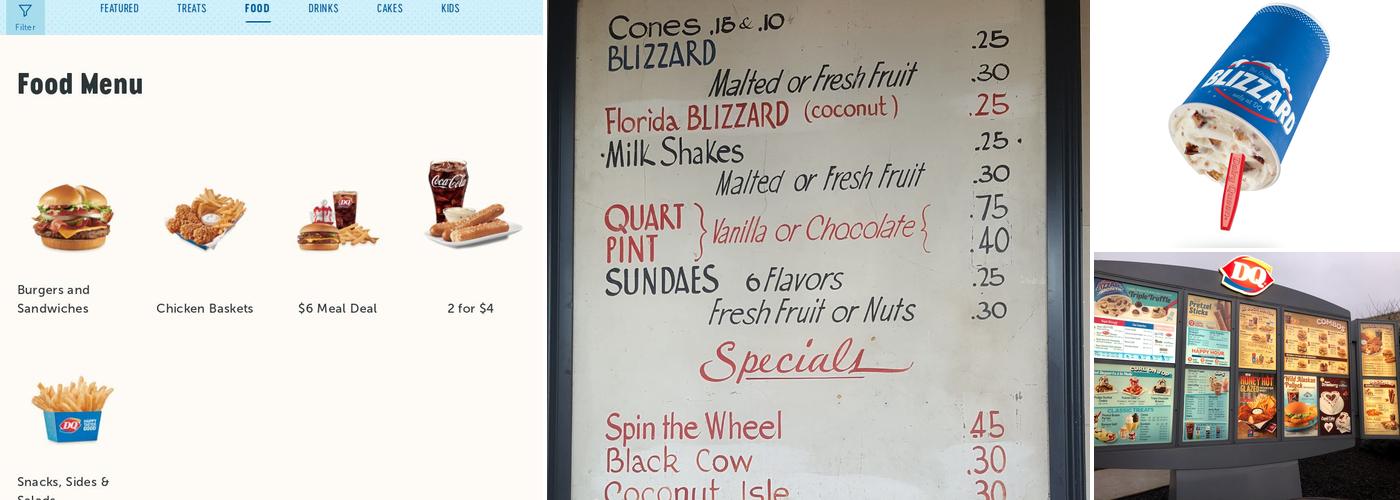 FEATURED TREATS FOOD DRINKS CAKES KIDS
Filter
Food Menu
Coca-Cola
DQ
Burgers and
Sandwiches
Chicken Baskets
$6 Meal Deal
2 for $4
DQ
HAPPY
TASTES
GOOD
Snacks, Sides &
Salads
Cones .15 & .10
BLIZZARD .25
Malted or Fresh Fruit .30
Florida BLIZZARD (coconut) .25
Milk Shakes .25
Malted or Fresh Fruit .30
QUART } Vanilla or Chocolate { .75
PINT .40
SUNDAES 6 Flavors .25
Fresh Fruit or Nuts .30
Specials
Spin the Wheel 45
Black Cow .30
Coconut Isle 30
BLIZZARD
only at DQ
DQ
BLIZZARD
Triple Truffle
Pretzel
Sticks
HAPPY HOUR
COMBOS
CLASSIC TREATS
HONEY HOT
GLAZED
Wild Alaskan
Pollock